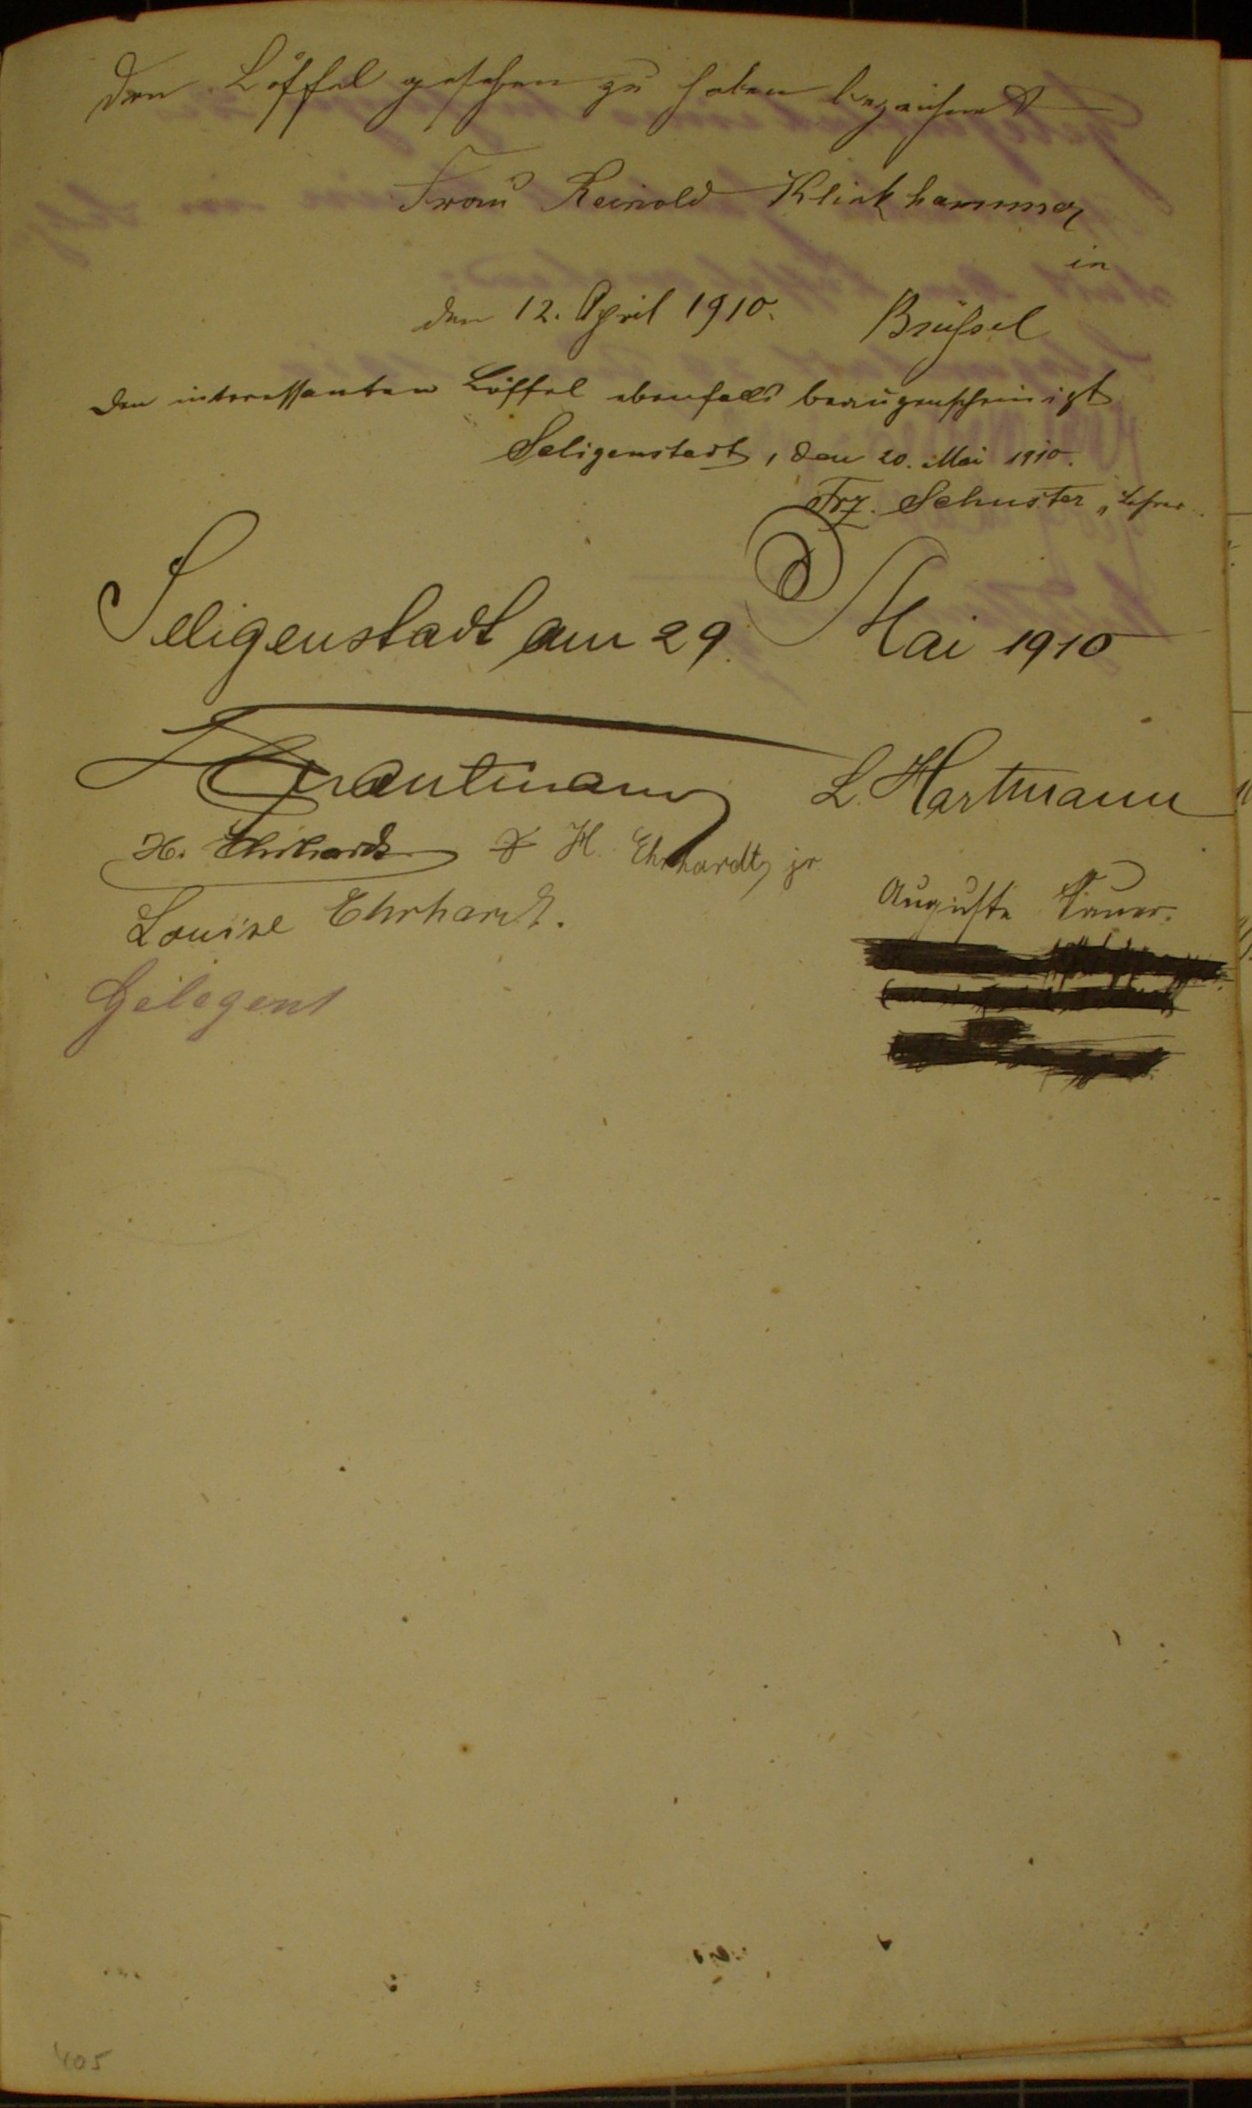 Den Löffel gesehen zu haben bezeichnet
Frau Reinold Klinkhammer
in
den 12. April 1910. Brüssel
Den interessanten Löffel ebenfalls beaugenscheinigt
Seligenstadt, den 20. Mai 1910.
Frz. Schuster, Lehrer.
Seligenstadt am 29. Mai 1910
Trautmann L. Hartmann
H. Ehrhardt & H. Ehrhardt jr.
Louise Ehrhardt. Auguste
Gelegent
405